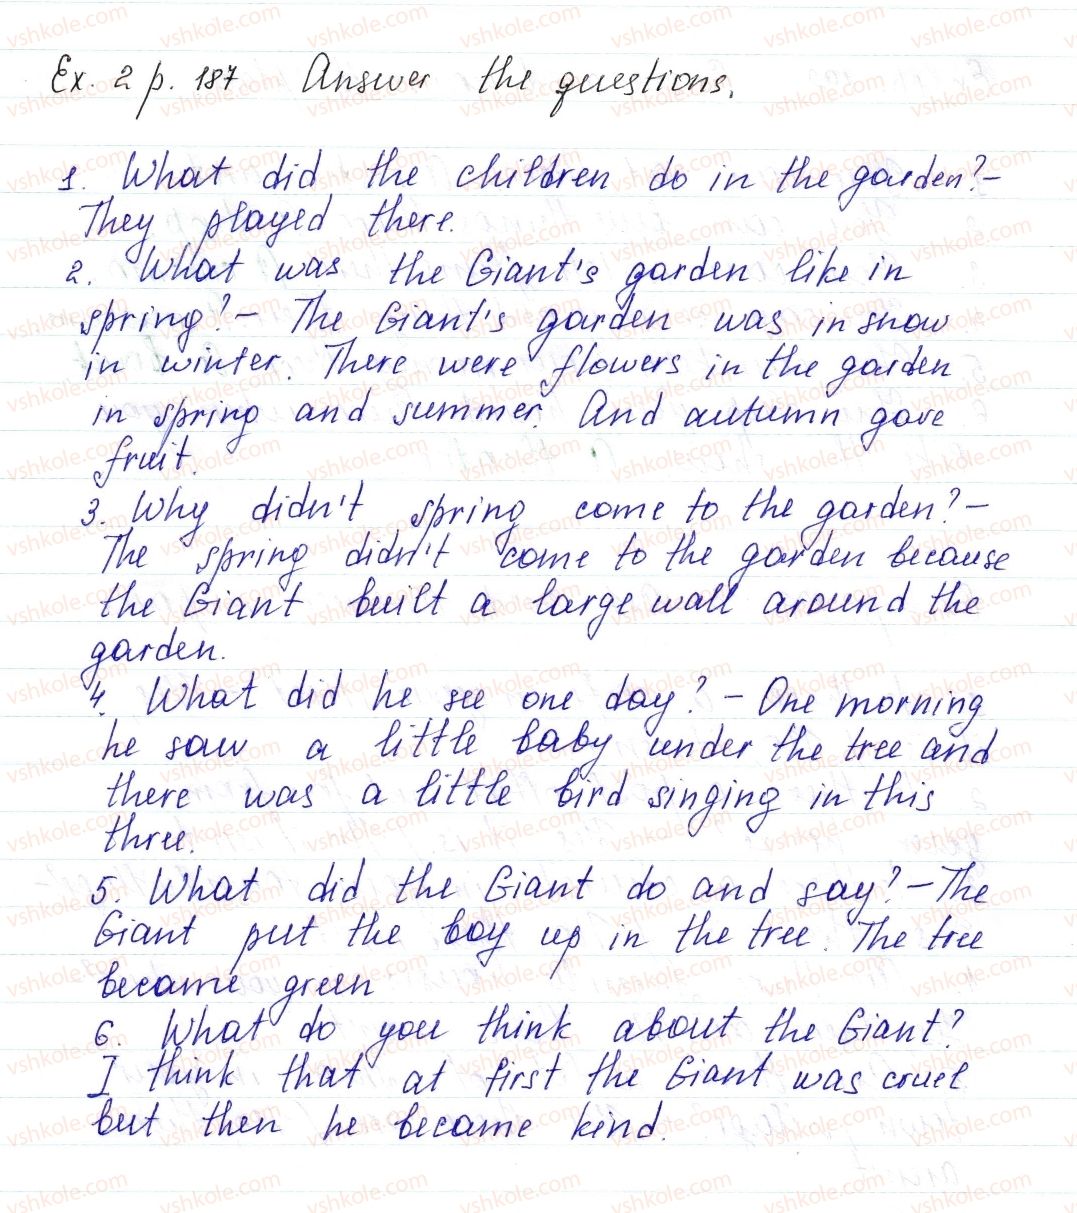 Ex. 2 p. 187 Answer the questions.
1. What did the children do in the garden? –
They played there.
2. What was the Giant's garden like in
spring? – The Giant's garden was in snow
in winter. There were flowers in the garden
in spring and summer. And autumn gave
fruit.
3. Why didn't spring come to the garden? –
The spring didn't come to the garden because
the Giant built a large wall around the
garden.
4. What did he see one day? – One morning
he saw a little baby under the tree and
there was a little bird singing in this
three.
5. What did the Giant do and say? – The
Giant put the boy up in the tree. The tree
became green
6. What do you think about the Giant?
I think that at first the Giant was cruel
but then he became kind.
vshkole.com